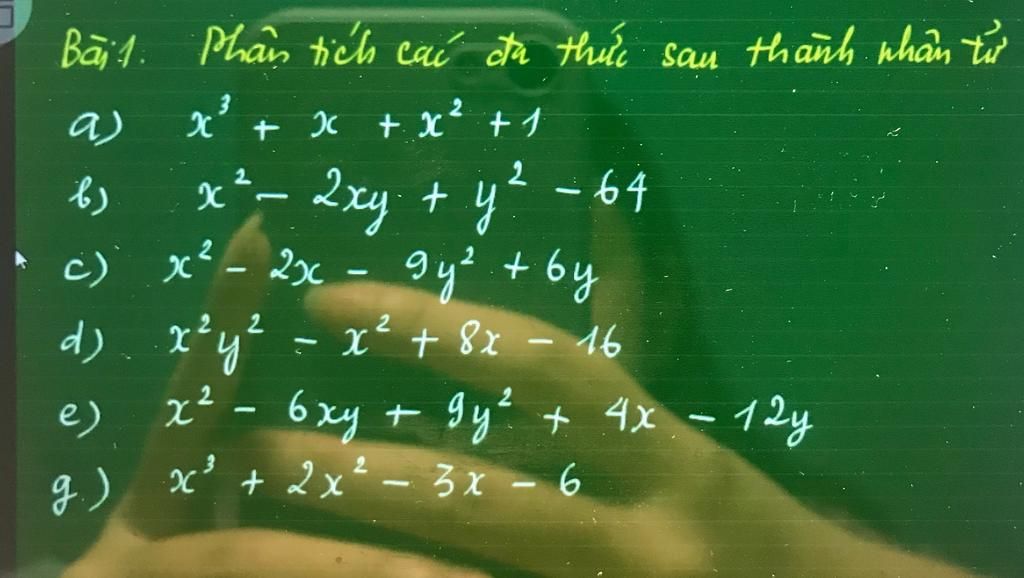 Bài 1. Phân tích các đa thức sau thành nhân tử
a) x³ + x + x² + 1
b) x² - 2xy + y² - 64
c) x² - 2x - 9y² + 6y
d) x²y² - x² + 8x - 16
e) x² - 6xy + 9y² + 4x - 12y
g) x³ + 2x² - 3x - 6